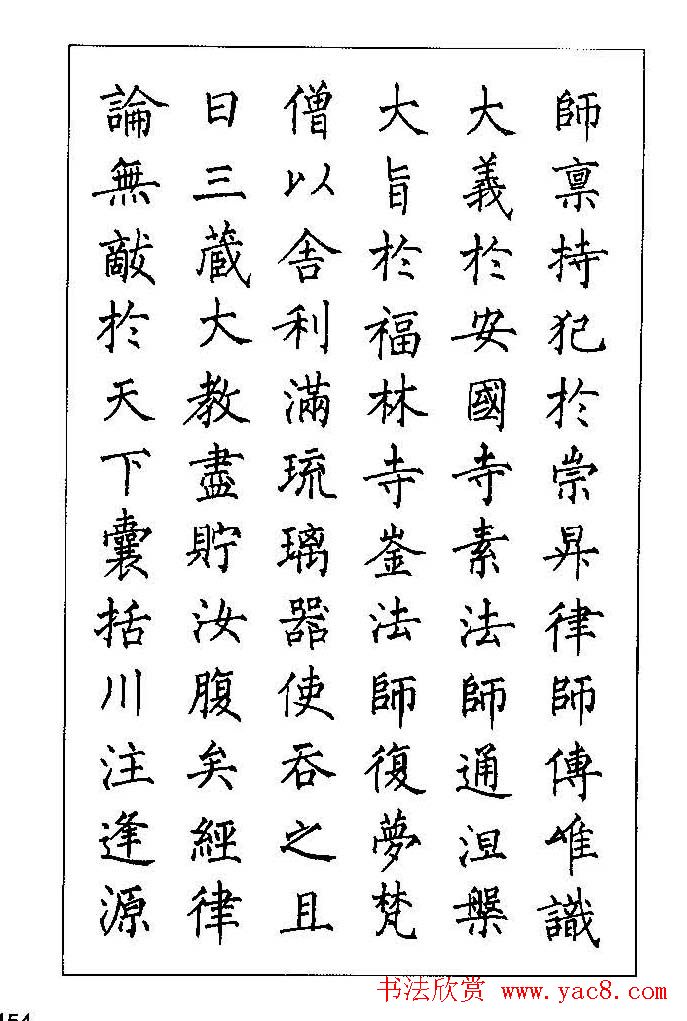 師禀持犯於崇昇律師傳唯識
大義於安國寺素法師通涅槃
大旨於福林寺崟法師復夢梵
僧以舍利滿琉璃器使吞之且
曰三藏大教盡貯汝腹矣經律
論無敵於天下囊括川注逢源
书法欣赏 www.yac8.com
154